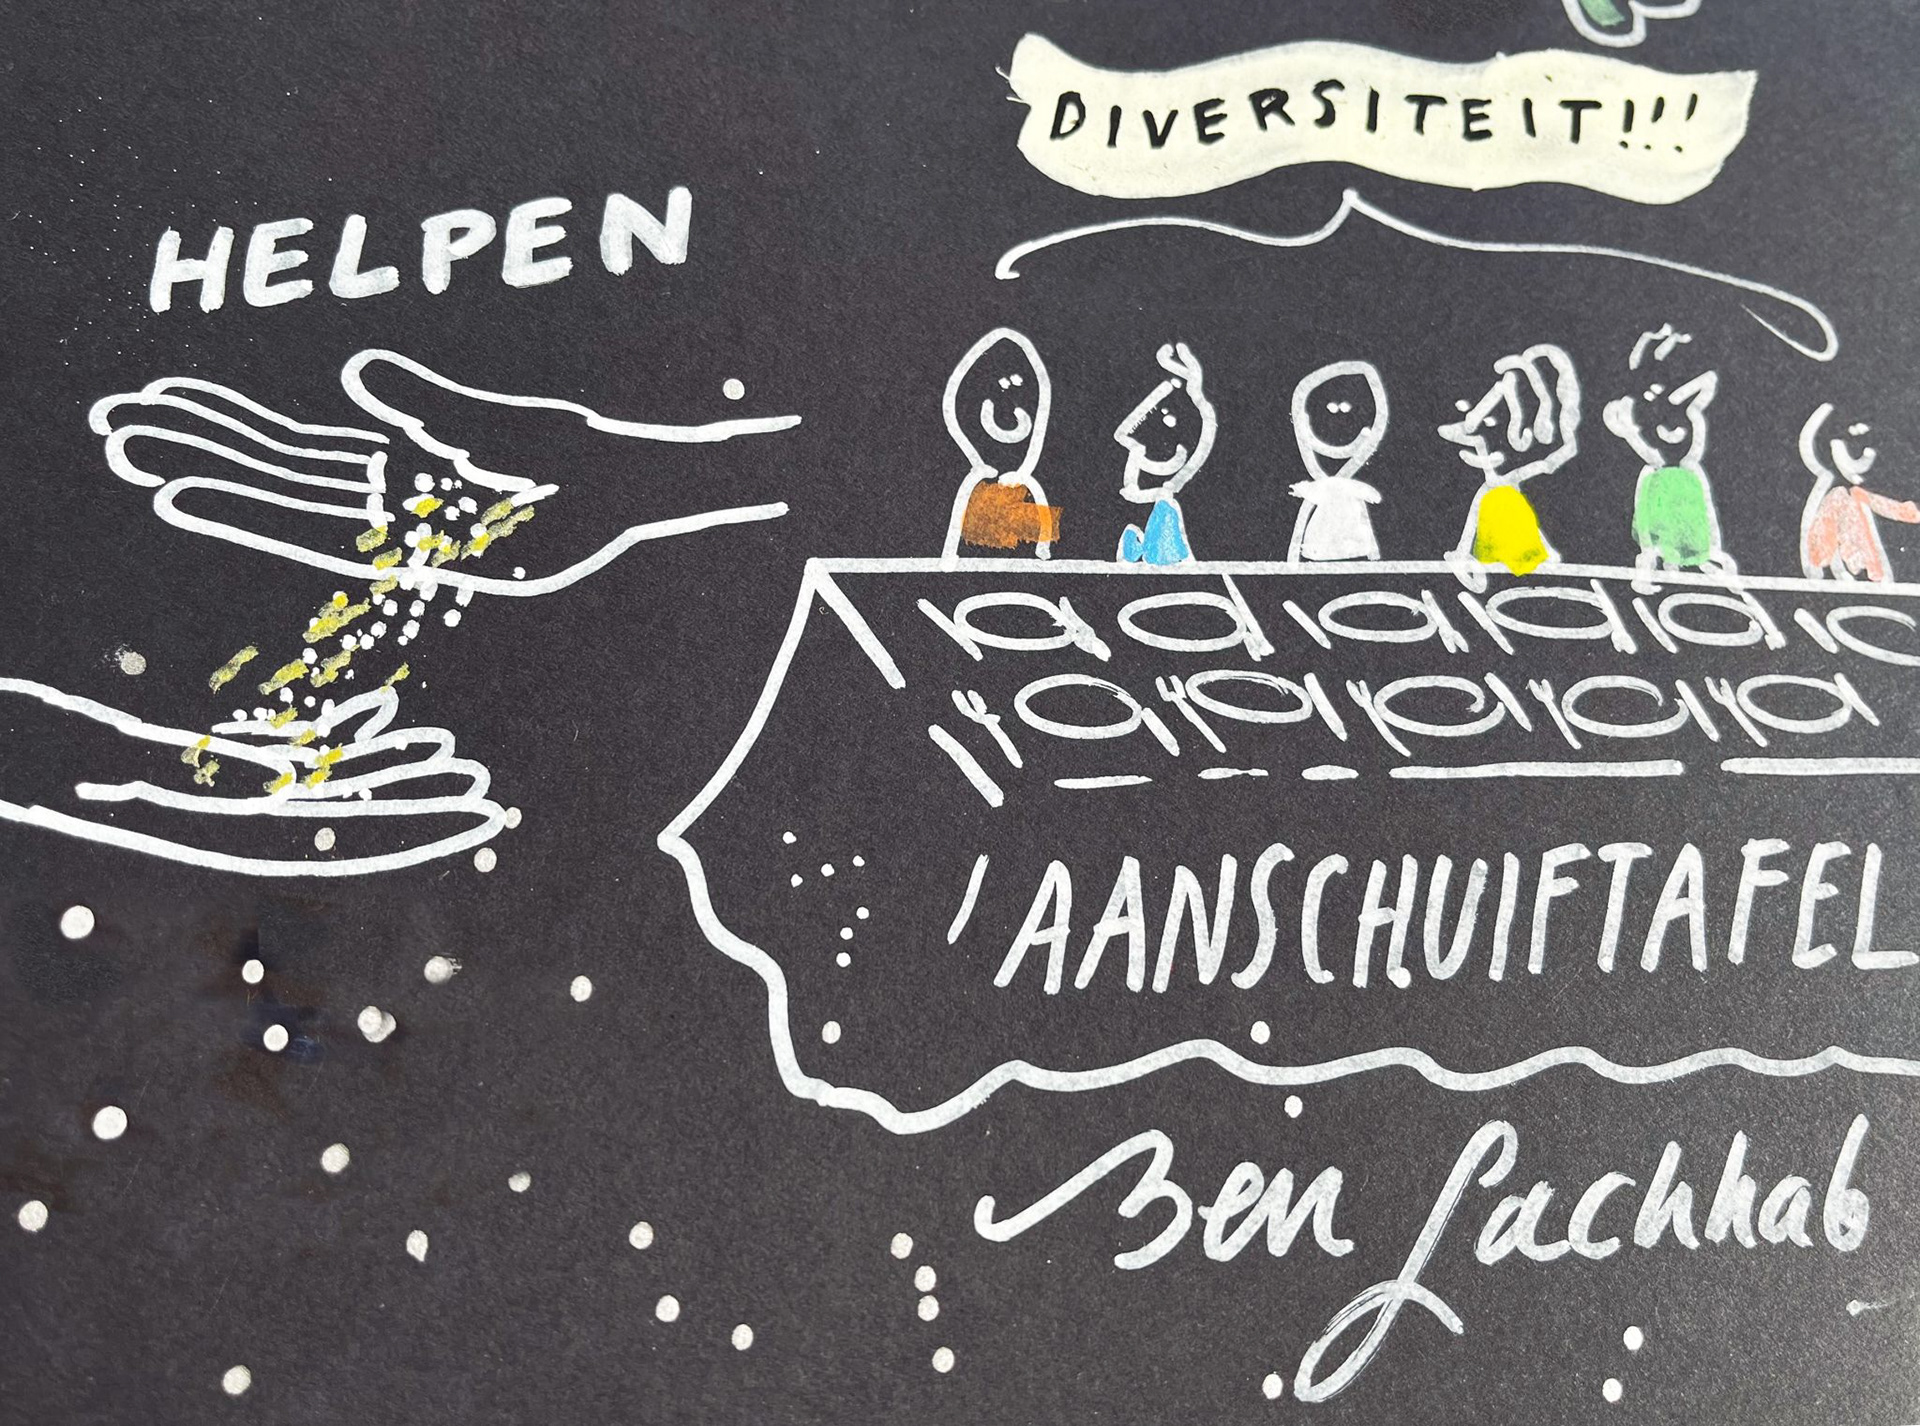 DIVERSITEIT!!!
HELPEN
'AANSCHUIFTAFEL
Ben Lachhab